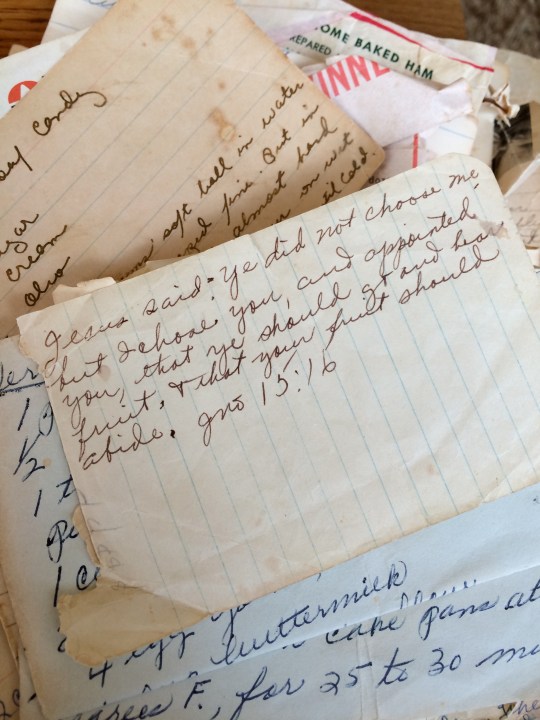 OME BAKED HAM
EPARED
INNE
Candy
gar
cream
soft ball in water
fine. Put in
almost hard
on wet
til cold.
Jesus said: Ye did not choose me
but I chose you, and appointed
you, that ye should go and bear
fruit, & that your fruit should
abide. Jno 15:16
1
1/2
1 t
1 c
4 egg
buttermilk
cake pans at
grees F., for 25 to 30 m